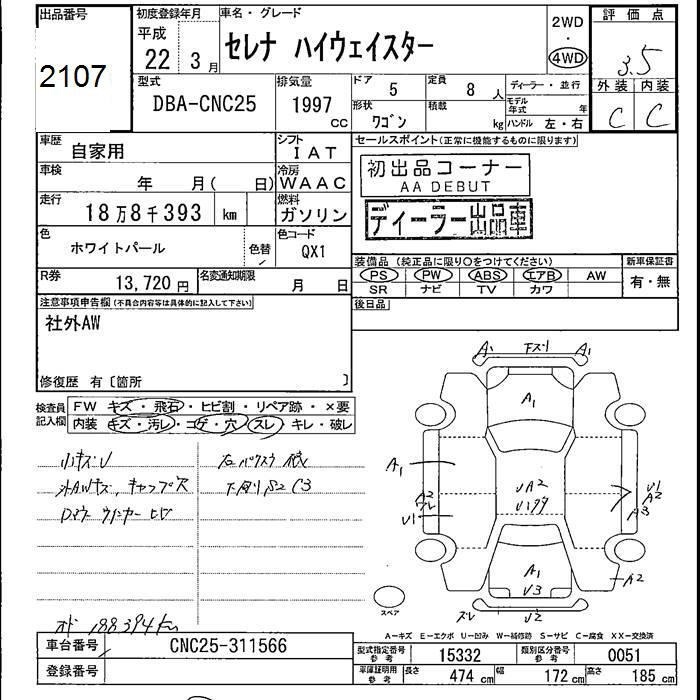 出品番号
2107
初度登録年月
平成
22 3月
車名・グレード
セレナ ハイウェイスター
2WD
・
4WD
評価点
3.5
外装 内装
C C
型式
DBA-CNC25
排気量
1997
CC
ドア 5
定員 8 人
ディーラー・並行
形状
ワゴン
積載
kg
モデル年式 年
ハンドル 左・右
車歴
自家用
シフト
IAT
セールスポイント(正常に機能するものに限ります)
初出品コーナー
AA DEBUT
ディーラー出品車
車検
年 月( 日)
冷房
WAAC
走行
18万8千393 km
燃料
ガソリン
色
ホワイトパール
色替
色コード
QX1
装備品 (純正品に限り○をつけてください)
新車保証書
PS PW ABS エアB AW
有・無
SR ナビ TV カワ
R券
13,720円
名変通知期限
月 日
後日品
注意事項申告欄(不具合内容等は具体的に記入して下さい)
社外AW
修復歴 有〔箇所 〕
検査員
記入欄
FW キズ・飛石・ヒビ割・リペア跡・×要
内装 キズ・汚レ・コゲ・穴・スレ・キレ・破レ
小キズU
外AWキズ、キャップ欠
下廻りS2 C3
188394km
A1 下スリ A1
A1
A1
A2
U1
UA2
U1
A2
A3
A1
U3
A2
ズレ U2
スペア
A-キズ E-エクボ U-凹み W-補修跡 S-サビ C-腐食 XX-交換済
車台番号
CNC25-311566
型式指定番号
参考
15332
類別区分番号
参考
0051
登録番号
車庫証明用
参考
長さ 474 cm
幅 172 cm
高さ 185 cm